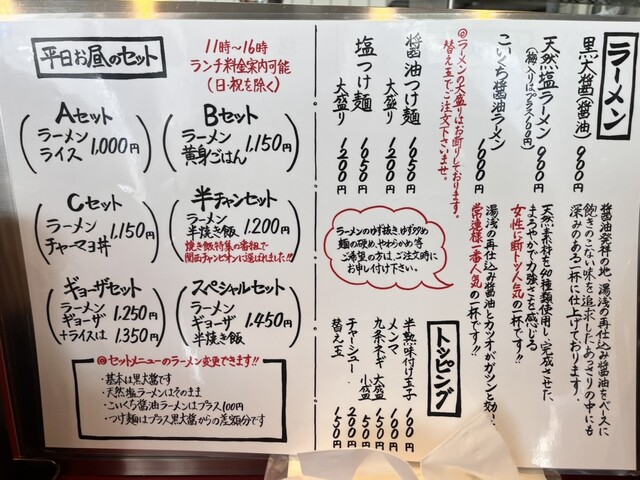 平日お昼のセット
11時〜16時
ランチ料金案内可能
(日・祝を除く)
Aセット
ラーメン
ライス
1,000円
Bセット
ラーメン
黄身ごはん
1,150円
Cセット
ラーメン
チャーマヨ丼
1,150円
半チャンセット
ラーメン
半焼き飯
1,200円
焼き飯特集の番組で
関西チャンピオンに選ばれました!!
ギョーザセット
ラーメン
ギョーザ
1,250円
+ライスは 1,350円
スペシャルセット
ラーメン
ギョーザ
半焼き飯
1,450円
@セットメニューのラーメン変更できます!!
・基本は黒大醤です
・天然塩ラーメンはそのまま
・こいくち醤油ラーメンはプラス100円
・つけ麺はプラス黒大醤からの差額分です
ラーメン
黒大醤(醤油) 900円
醤油発祥の地 湯浅の再仕込み醤油をベースに
飽きのこない味を追求したあっさりの中にも
深みのある一杯に仕上げております。
天然塩ラーメン 900円
(梅入りはプラス100円)
天然素材を40種類使用し、完成させた、
まろやかで力強さを感じる
女性に断トツ人気の一杯です!!
こいくち醤油ラーメン 1000円
湯浅の再仕込み醤油とカツオがガツンと効く、
常連様一番人気の一杯です!!
@ラーメンの大盛りはお断りしております。
替え玉でご注文下さいませ。
醤油つけ麺 1050円
大盛り 1200円
塩つけ麺 1050円
大盛り 1200円
ラーメンのゆず抜き、ゆず多め
麺の硬め、やわらかめ等
ご希望の方は、ご注文時に
お申し付け下さい。
トッピング
半熟味付け玉子 100円
メンマ 100円
九条ネギ 大盛 150円
小盛 50円
チャーシュー 200円
替え玉 150円